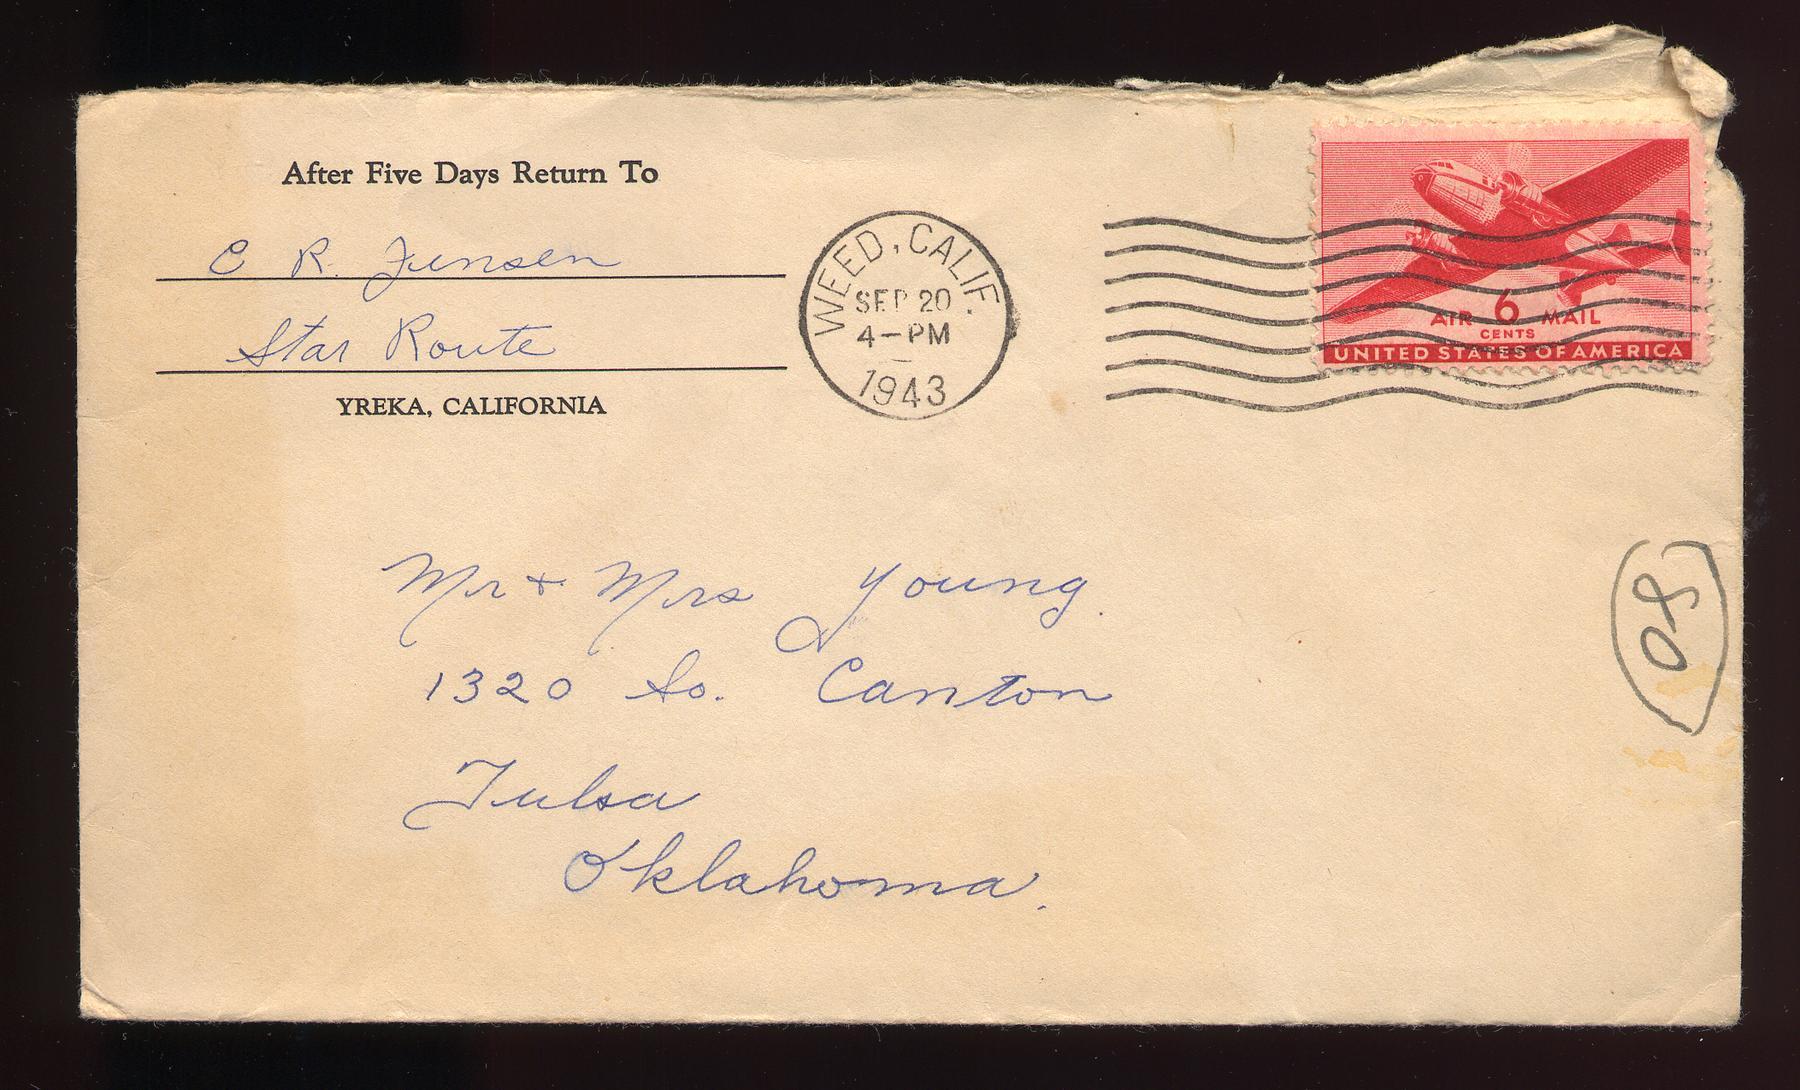 After Five Days Return To
C R. Jensen
Star Route
YREKA, CALIFORNIA
WEED, CALIF.
SEP 20
4-PM
1943
AIR 6 MAIL
CENTS
UNITED STATES OF AMERICA
Mr + Mrs Young.
1320 So. Canton
Tulsa
Oklahoma.